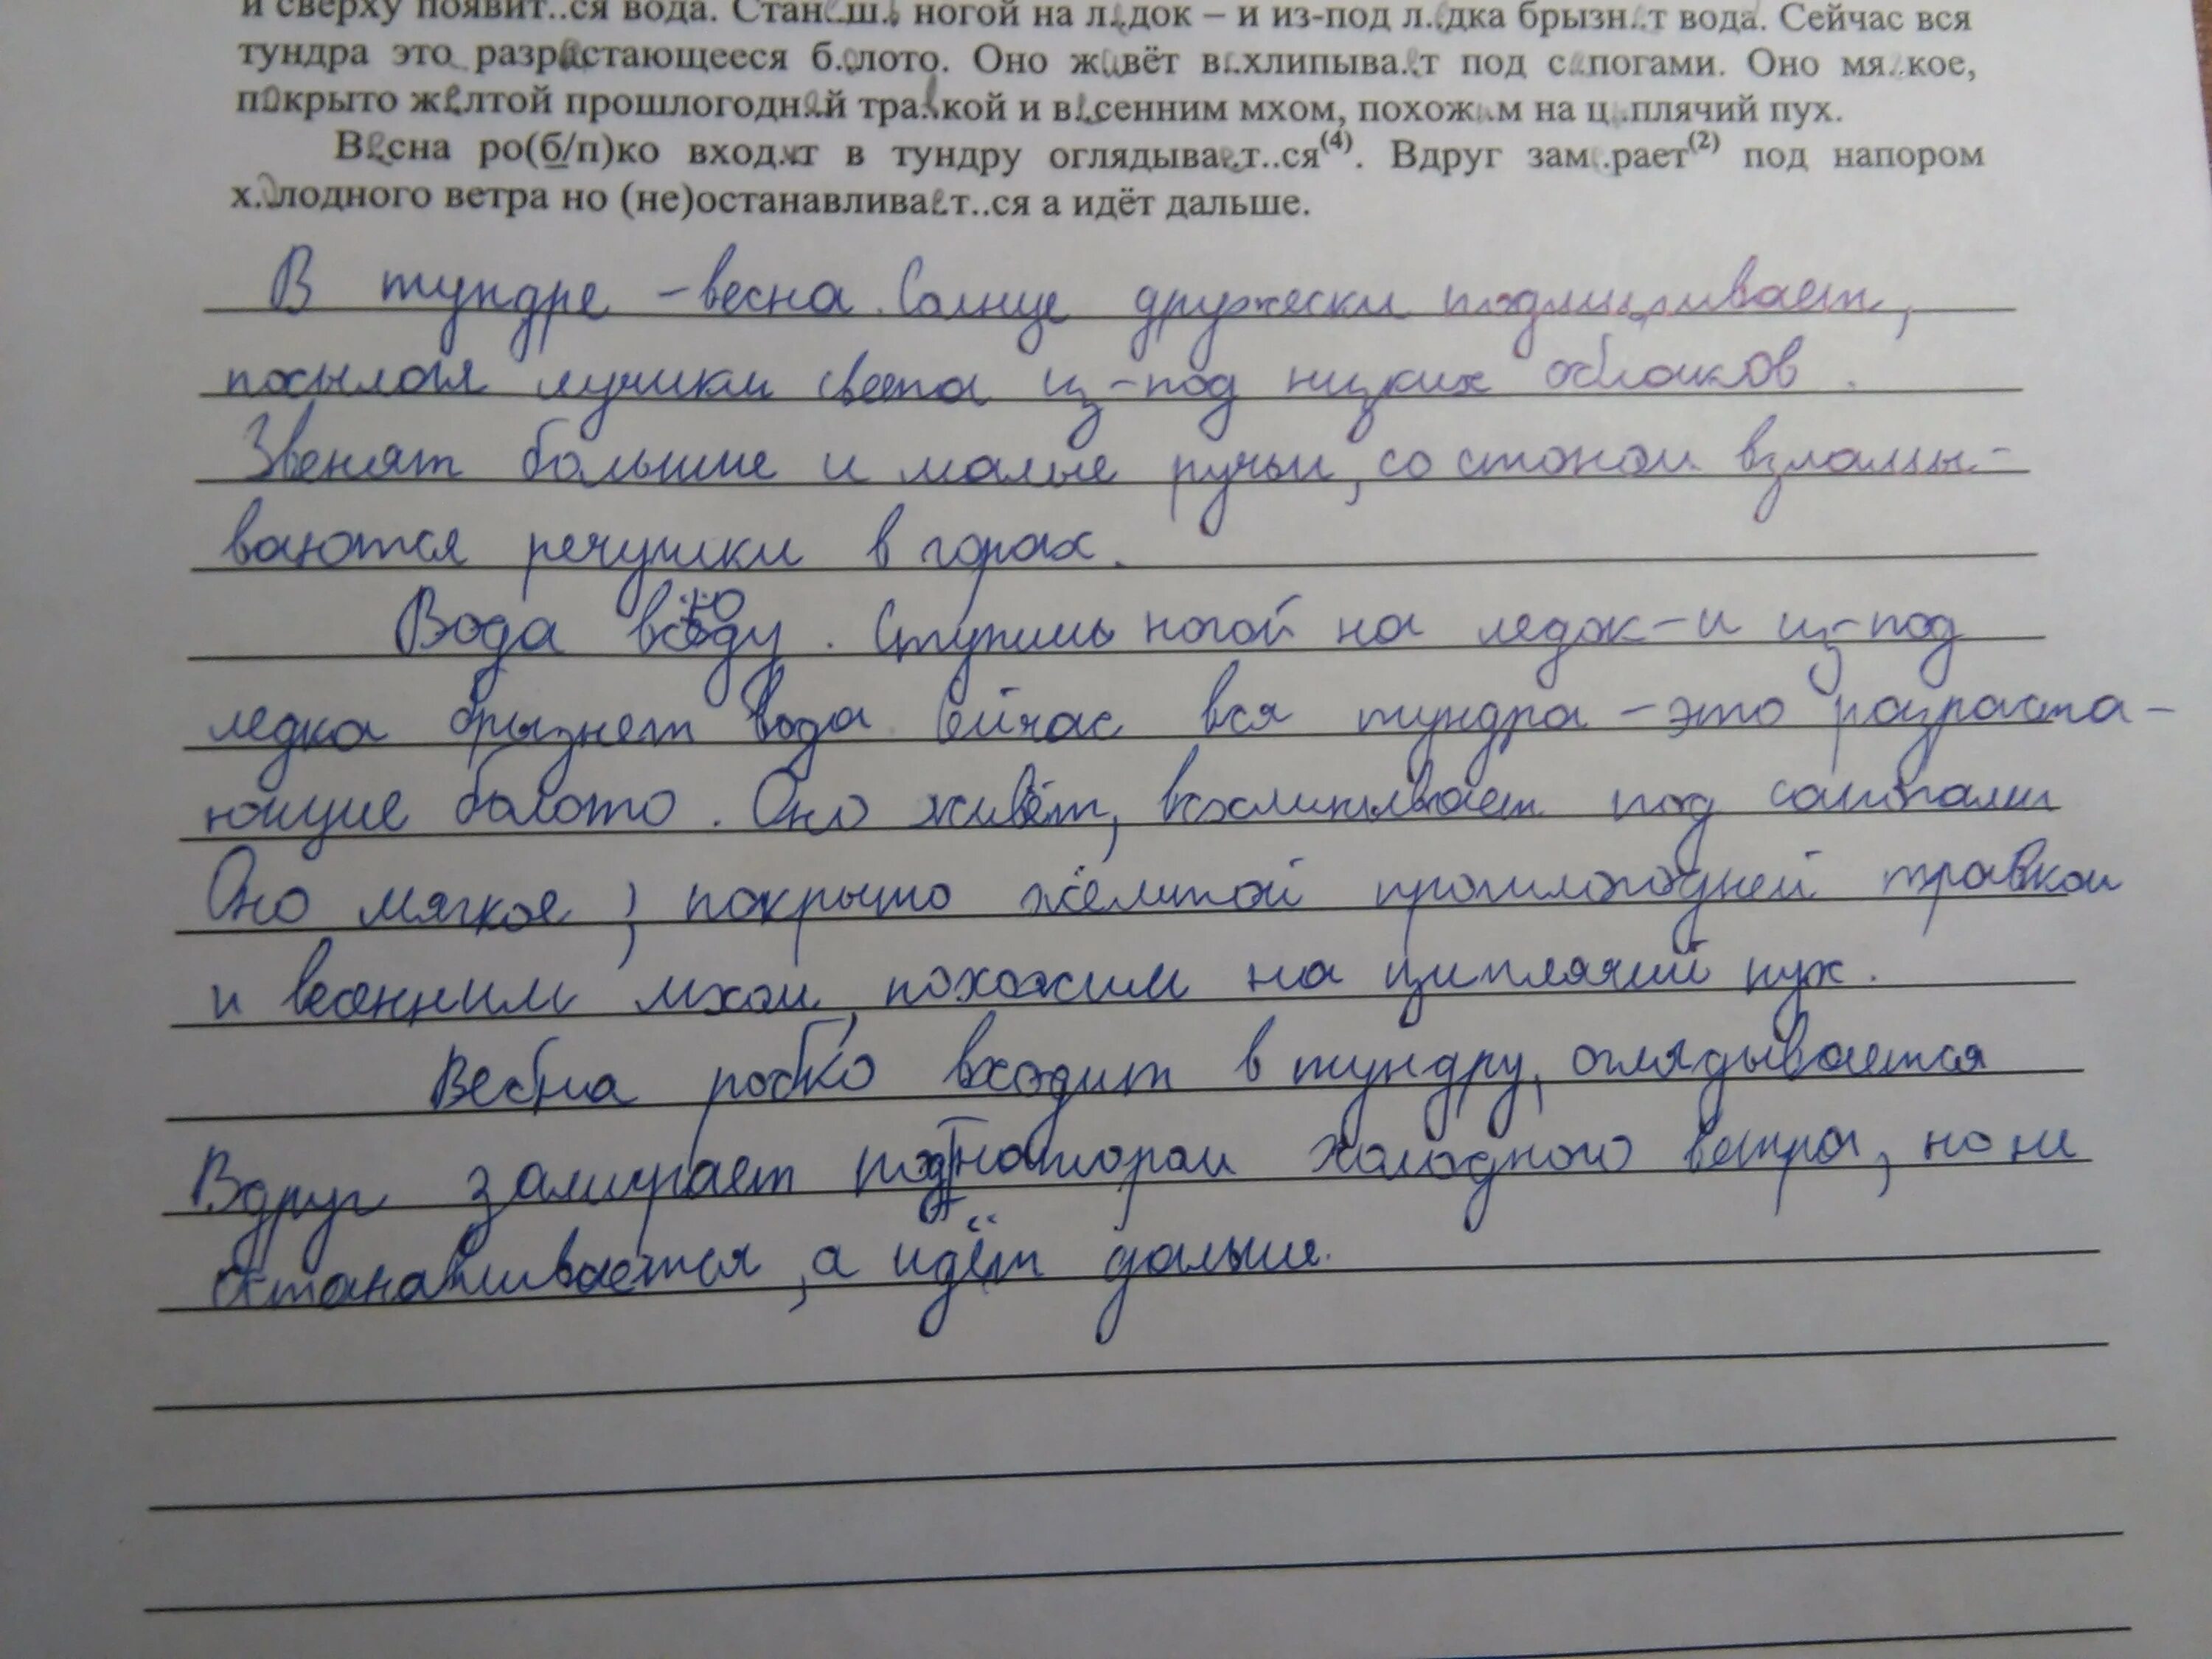 и сверху появит..ся вода. Станеш.ь ногой на л.едок – и из-под л.едка брызн..т вода. Сейчас вся
тундра это разрастающееся б.олото. Оно живёт всхлипывает под сапогами. Оно мя..кое,
покрыто жёлтой прошлогодней травкой и весенним мхом, похожим на ц..плячий пух.
Весна ро(б/п)ко входит в тундру оглядывает..ся(4). Вдруг зам..рает(2) под напором
х.олодного ветра но (не)останавливает..ся а идёт дальше.
В тундре – весна. Солнце дружески подмигивает,
посылая лучики света из-под низких облаков.
Звенят большие и малые ручьи, со стоном взламы-
ваются речушки в горах.
Вода всюду. Ступишь ногой на ледок – и из-под
ледка брызнет вода. Сейчас вся тундра – это разраста-
ющие болото. Оно живёт, всхлипывает под сапогами
Оно мягкое, покрыто жёлтой прошлогодней травкой
и весенним мхом, похожим на циплячий пух.
Весна робко входит в тундру, оглядывается
Вдруг замирает под напором холодного ветра, но не
останавливается, а идёт дальше.